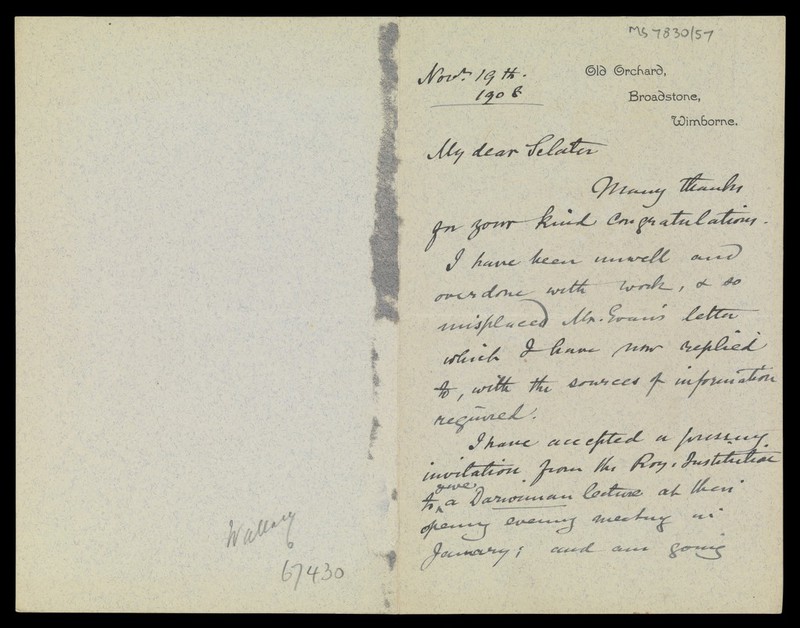 MS 7830/57
Novr. 19th.
1908
Old Orchard,
Broadstone,
Wimborne.
My dear Sclater
Many thanks
for your kind congratulations.
I have been unwell and
overdone with work, & so
misplaced Mr. Evans letter
which I have now replied
to, with the sources of information
required.
I have accepted a pressing
invitation from the Roy. Institution
to give a Darwinian lecture at their
opening evening meeting in
January; and am going
Wallace
67430